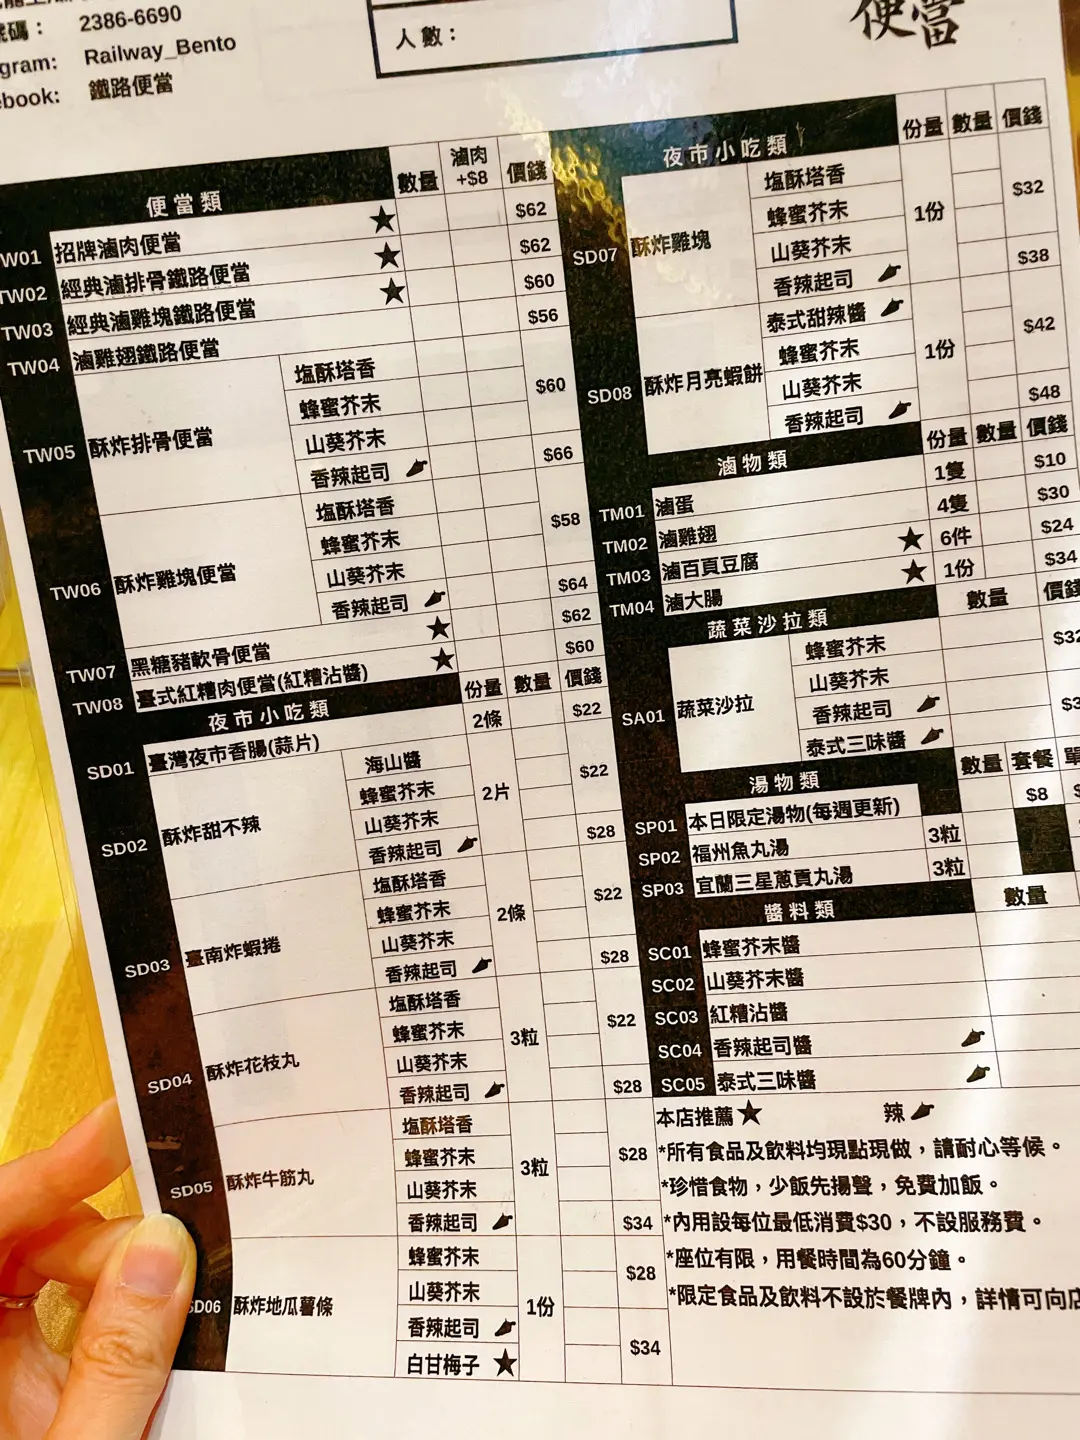 號碼： 2386-6690
gram: Railway_Bento
ebook: 鐵路便當
人數：
便當
便當類 數量 滷肉+$8 價錢
W01 招牌滷肉便當 ★ $62
TW02 經典滷排骨鐵路便當 ★ $62
TW03 經典滷雞塊鐵路便當 ★ $60
TW04 滷雞翅鐵路便當 $56
TW05 酥炸排骨便當
塩酥塔香
蜂蜜芥末
山葵芥末
$60
香辣起司 $66
TW06 酥炸雞塊便當
塩酥塔香
蜂蜜芥末
山葵芥末
$58
香辣起司 $64
TW07 黑糖豬軟骨便當 ★ $62
TW08 臺式紅糟肉便當(紅糟沾醬) ★ $60
夜市小吃類 份量 數量 價錢
SD01 臺灣夜市香腸(蒜片) 2條 $22
SD02 酥炸甜不辣 2片
海山醬
蜂蜜芥末
山葵芥末
$22
香辣起司 $28
SD03 臺南炸蝦捲 2條
塩酥塔香
蜂蜜芥末
山葵芥末
$22
香辣起司 $28
SD04 酥炸花枝丸 3粒
塩酥塔香
蜂蜜芥末
山葵芥末
$22
香辣起司 $28
SD05 酥炸牛筋丸 3粒
塩酥塔香
蜂蜜芥末
山葵芥末
$28
香辣起司 $34
SD06 酥炸地瓜薯條 1份
蜂蜜芥末
山葵芥末
$28
香辣起司
白甘梅子 ★
$34
夜市小吃類 份量 數量 價錢
SD07 酥炸雞塊 1份
塩酥塔香
蜂蜜芥末
山葵芥末
$32
香辣起司 $38
SD08 酥炸月亮蝦餅 1份
泰式甜辣醬
蜂蜜芥末
山葵芥末
$42
香辣起司 $48
滷物類 份量 數量 價錢
TM01 滷蛋 1隻 $10
TM02 滷雞翅 4隻 $30
TM03 滷百頁豆腐 ★ 6件 $24
TM04 滷大腸 ★ 1份 $34
蔬菜沙拉類 數量 價錢
SA01 蔬菜沙拉
蜂蜜芥末
山葵芥末
$32
香辣起司
泰式三味醬
$3
湯物類 數量 套餐 單
SP01 本日限定湯物(每週更新) $8
SP02 福州魚丸湯 3粒
SP03 宜蘭三星蔥貢丸湯 3粒
醬料類 數量
SC01 蜂蜜芥末醬
SC02 山葵芥末醬
SC03 紅糟沾醬
SC04 香辣起司醬
SC05 泰式三味醬
本店推薦★ 辣
*所有食品及飲料均現點現做，請耐心等候。
*珍惜食物，少飯先揚聲，免費加飯。
*內用設每位最低消費$30，不設服務費。
*座位有限，用餐時間為60分鐘。
*限定食品及飲料不設於餐牌內，詳情可向店